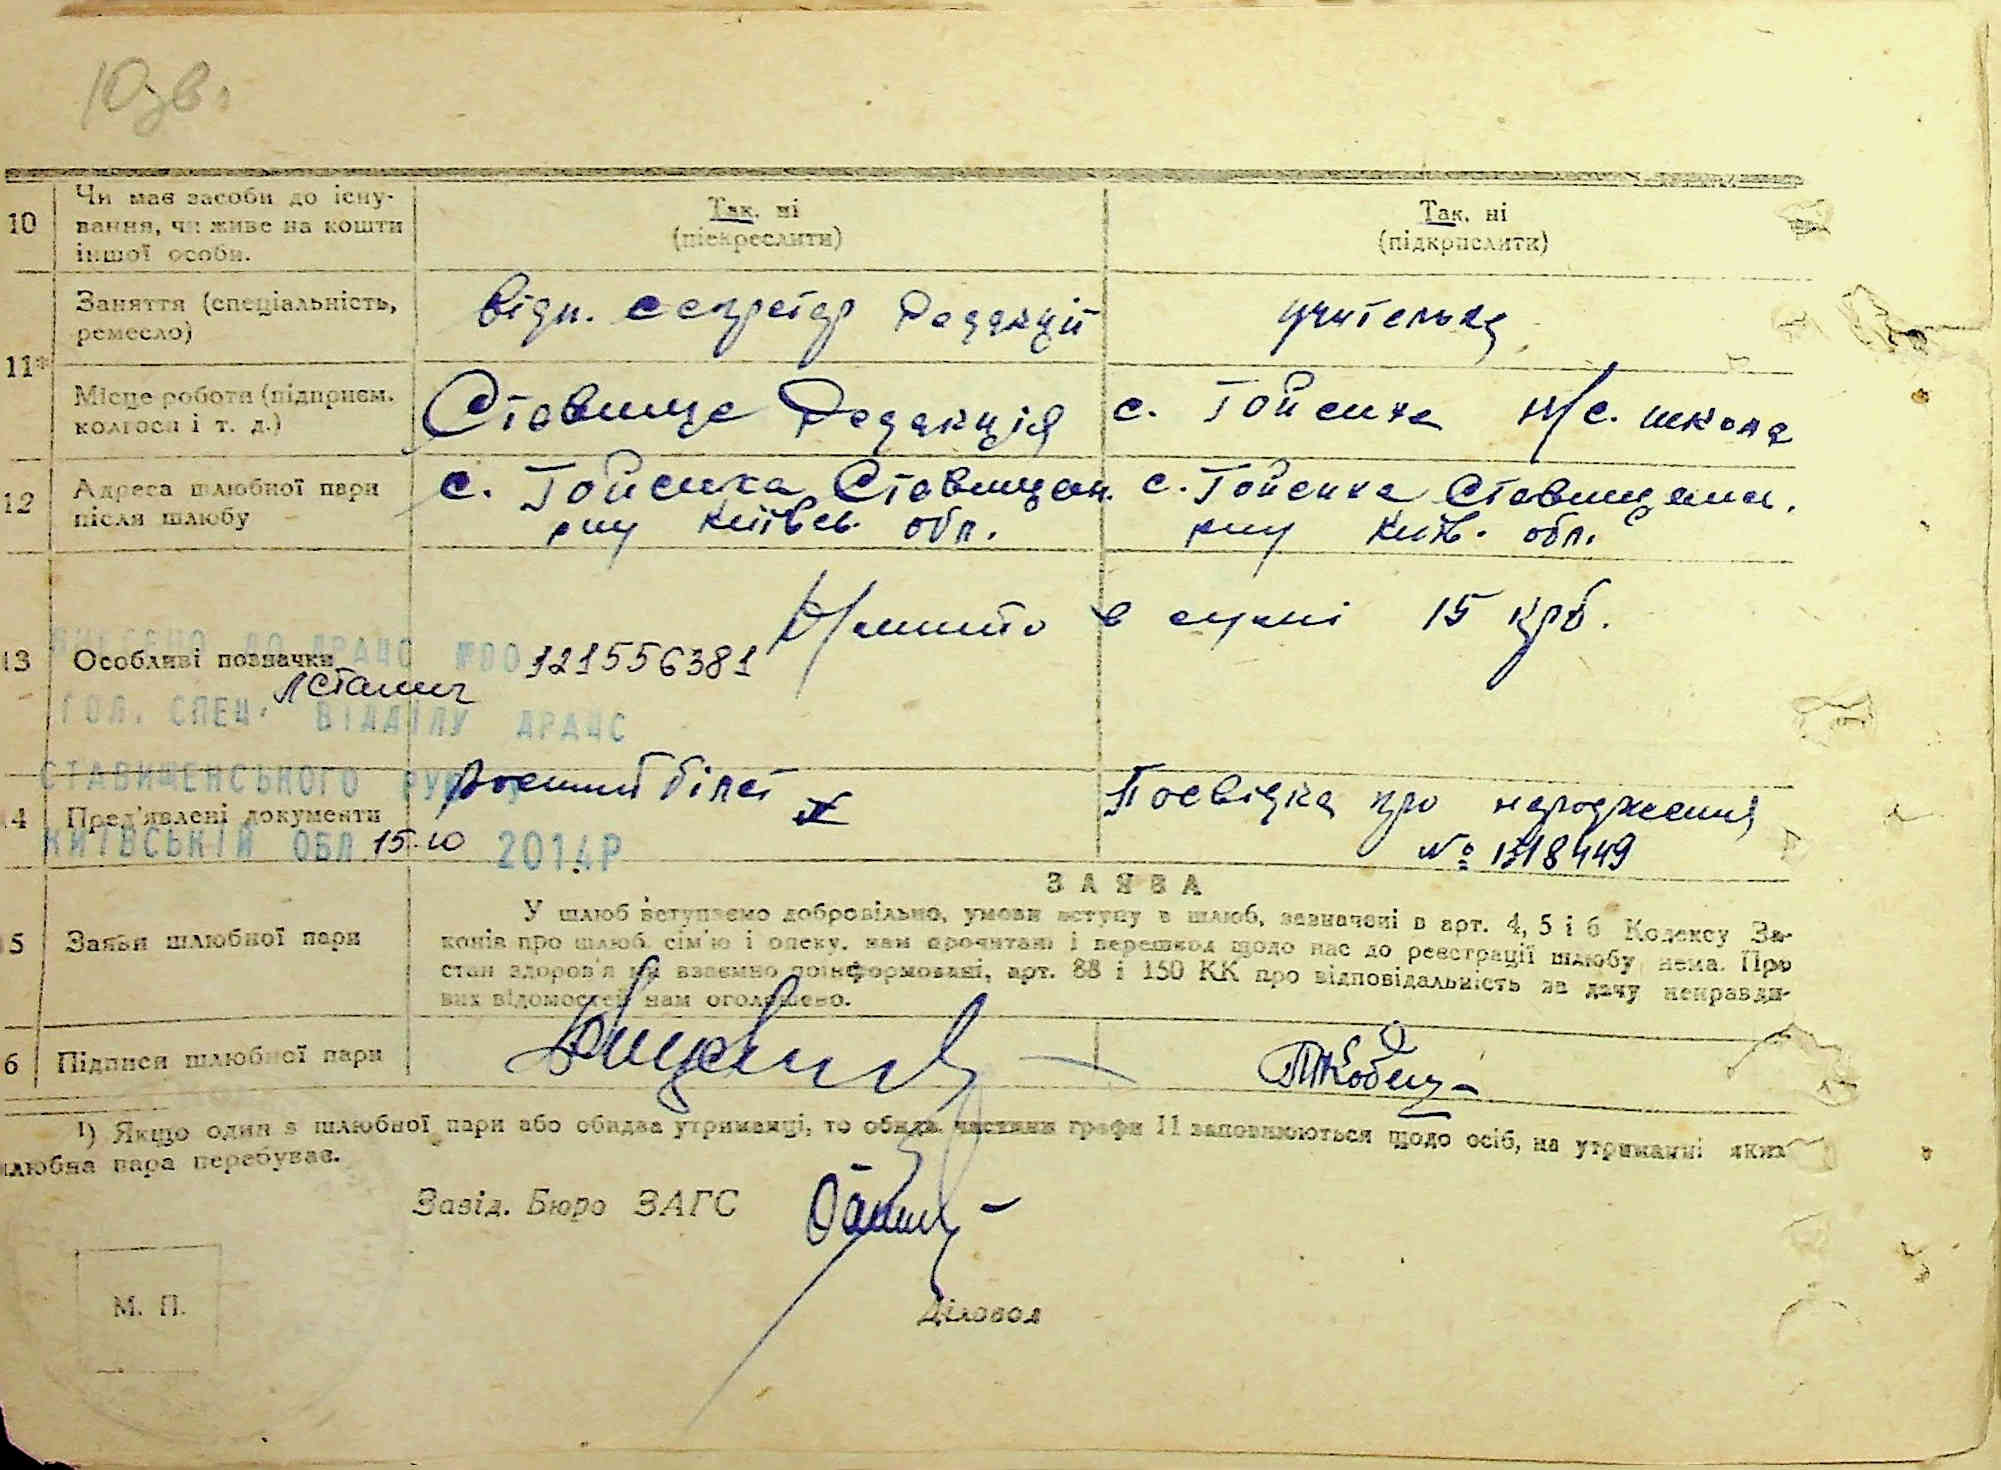 10 Чи має засоби до існу-
вання, чи живе на кошти
іншої особи.
Так, ні
(підкреслити)
Так, ні
(підкрислити)
11* Заняття (спеціальність,
ремесло)
Відп. секретар Редакції
учителька
Місце роботи (підприєм.
колгосп і т. д.)
Ставище Редакція
с. Гойсиха н/с. школа
12 Адреса шлюбної пари
після шлюбу
с. Гойсиха Ставищан.
р-ну Київсь. обл.
с. Гойсиха Ставищанськ.
р-ну Київ. обл.
13 Особливі позначки
Мешито в сумі 15 крб.
ВНЕСЕНО ДО ДРАЦС №00121556381
ГОЛ. СПЕЦ. ВІДДІЛУ ДРАЦС
СТАВИЩЕНСЬКОГО РУЮ
КИЇВСЬКІЙ ОБЛ 15.10 2014Р
14 Пред'явлені документи
Воєнний білет
Посвідка про народження
№ 1318449
ЗАЯВА
15 Заяви шлюбної пари
У шлюб вступаємо добровільно, умови вступу в шлюб, зазначені в арт. 4, 5 і 6 Кодексу За-
конів про шлюб, сім'ю і опеку, нам прочитані і перешкод щодо нас до реєстрації шлюбу нема. Про
стан здоров'я ми взаємно поінформовані, арт. 88 і 150 КК про відповідальність за дачу неправди-
вих відомостей нам оголошено.
16 Підписи шлюбної пари
¹) Якщо один з шлюбної пари або обидва утриманці, то обидві частини графи 11 заповнюються щодо осіб, на утриманні яких
шлюбна пара перебуває.
Завід. Бюро ЗАГС
М. П.
Діловод